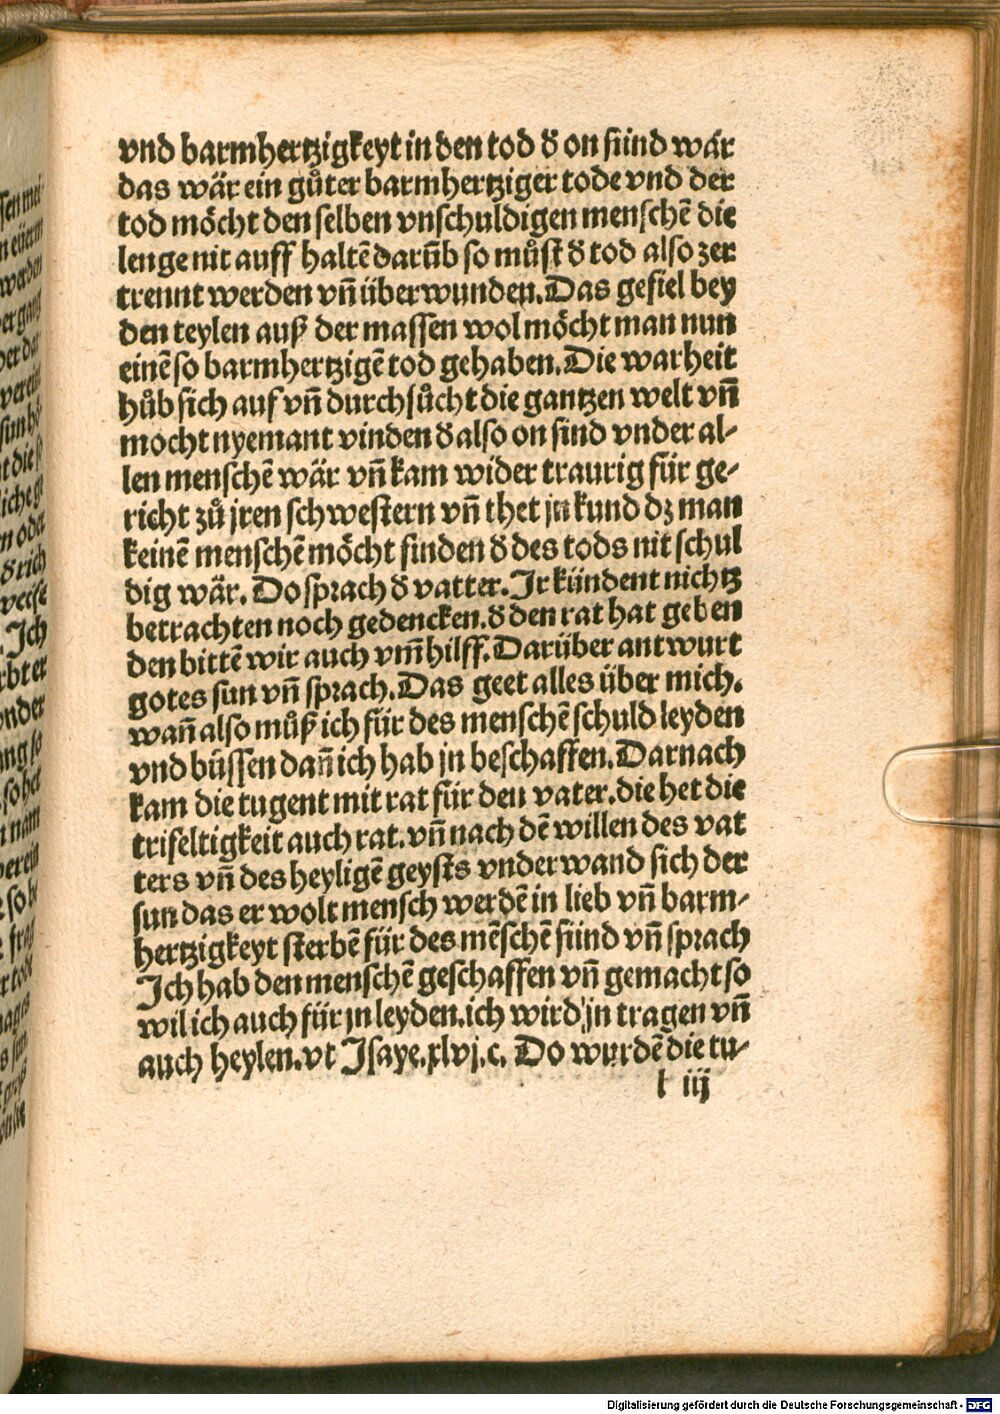 vnd barmhertzigkeyt in den tod d̕ on sünd wär
das wär ein gůter barmhertziger tode vnd der
tod möcht den selben vnschuldigen menschē die
lenge nit auff haltē darūb so můst d̕ tod also zer
trennt werden vn̄ überwunden. Das gefiel bey
den teylen auß der massen wol möcht man nun
einē so barmhertzigē tod gehaben. Die warheit
hůb sich auf vn̄ durchsůcht die gantzen welt vn̄
mocht nyemant vinden d̕ also on sind vnder al-
len menschē wär vn̄ kam wider traurig für ge-
richt zů jren schwestern vn̄ thet jn kund dz man
keinē menschē möcht finden d̕ des tods nit schul
dig wär. Do sprach d̕ vatter. Jr kündent nichtz
betrachten noch gedencken. d̕ den rat hat geben
den bittē wir auch vm̄ hilff. Darüber antwurt
gotes sun vn̄ sprach. Das geet alles über mich.
wan̄ also můß ich für des menschē schuld leyden
vnd büssen dan̄ ich hab jn beschaffen. Darnach
kam die tugent mit rat für den vater. die het die
trifeltigkeit auch rat. vn̄ nach dē willen des vat
ters vn̄ des heyligē geysts vnderwand sich der
sun das er wolt mensch werdē in lieb vn̄ barm-
hertzigkeyt sterbē für des mēschē sünd vn̄ sprach
Ich hab den menschē geschaffen vn̄ gemacht so
wil ich auch für jn leyden. ich wird jn tragen vn̄
auch heylen. vt Jsaye. xlvj. c. Do wurdē die tu-
l iij
Digitalisierung gefördert durch die Deutsche Forschungsgemeinschaft - DFG